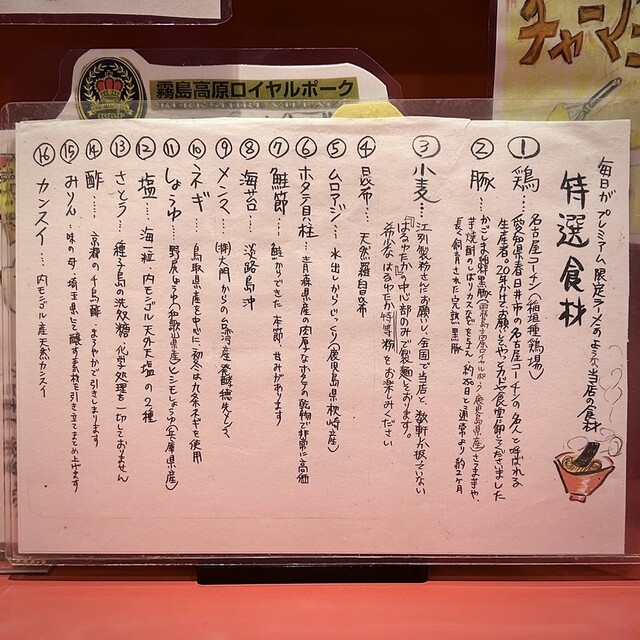 霧島高原ロイヤルポーク
チャーシ
毎日がプレミアム 限定ラーメンのような当店の食材
特選食材
① 鶏…名古屋コーチン(稲垣種鶏場)
愛知県春日井市の名古屋コーチンの名人と呼ばれる
生産者。20年かけてお願いしやっとカドヤ食堂に卸してくださいました
② 豚…かごしま純粋黒豚(霧島高原ロイヤルポーク/鹿児島県産)さつま芋や、
芋焼酎のしぼりカスなどを与え 約260日と通常より約2ヶ月
長く飼育された完熟黒豚
③ 小麦…江別製粉さんにお願いし、全国で当店と、数軒しか扱っていない
「はるゆたか」の中心部のみで製麺しております。
希少な「はるゆたか特等粉」をお楽しみください
④ 昆布…天然羅臼昆布
⑤ ムロアジ…水出しからじっくり(鹿児島県枕崎産)
⑥ ホタテ貝柱…青森県産の肉厚なホタテの乾物で非常に高価
⑦ 鮭節…鮭からできた本節、甘みがあります
⑧ 海苔…淡路島沖
⑨ メンマ…(株)大門からの台湾産発酵穂先メンマ
⑩ ネギ…鳥取県産を中心に、初冬は九条ネギを使用
⑪ しょうゆ…野尻しょうゆ(和歌山県産)とシモしょうゆ(兵庫県産)
⑫ 塩…海一粒・内モンゴル天外天塩の2種
⑬ さとう…種子島の洗双糖・化学処理を一切しておりません
⑭ 酢…京都の千鳥酢・まろやかで引きしまります
⑮ みりん…味の母・埼玉県にて醸す素材を引き立てまとめ上げます
⑯ カンスイ…内モンゴル産天然カンスイ